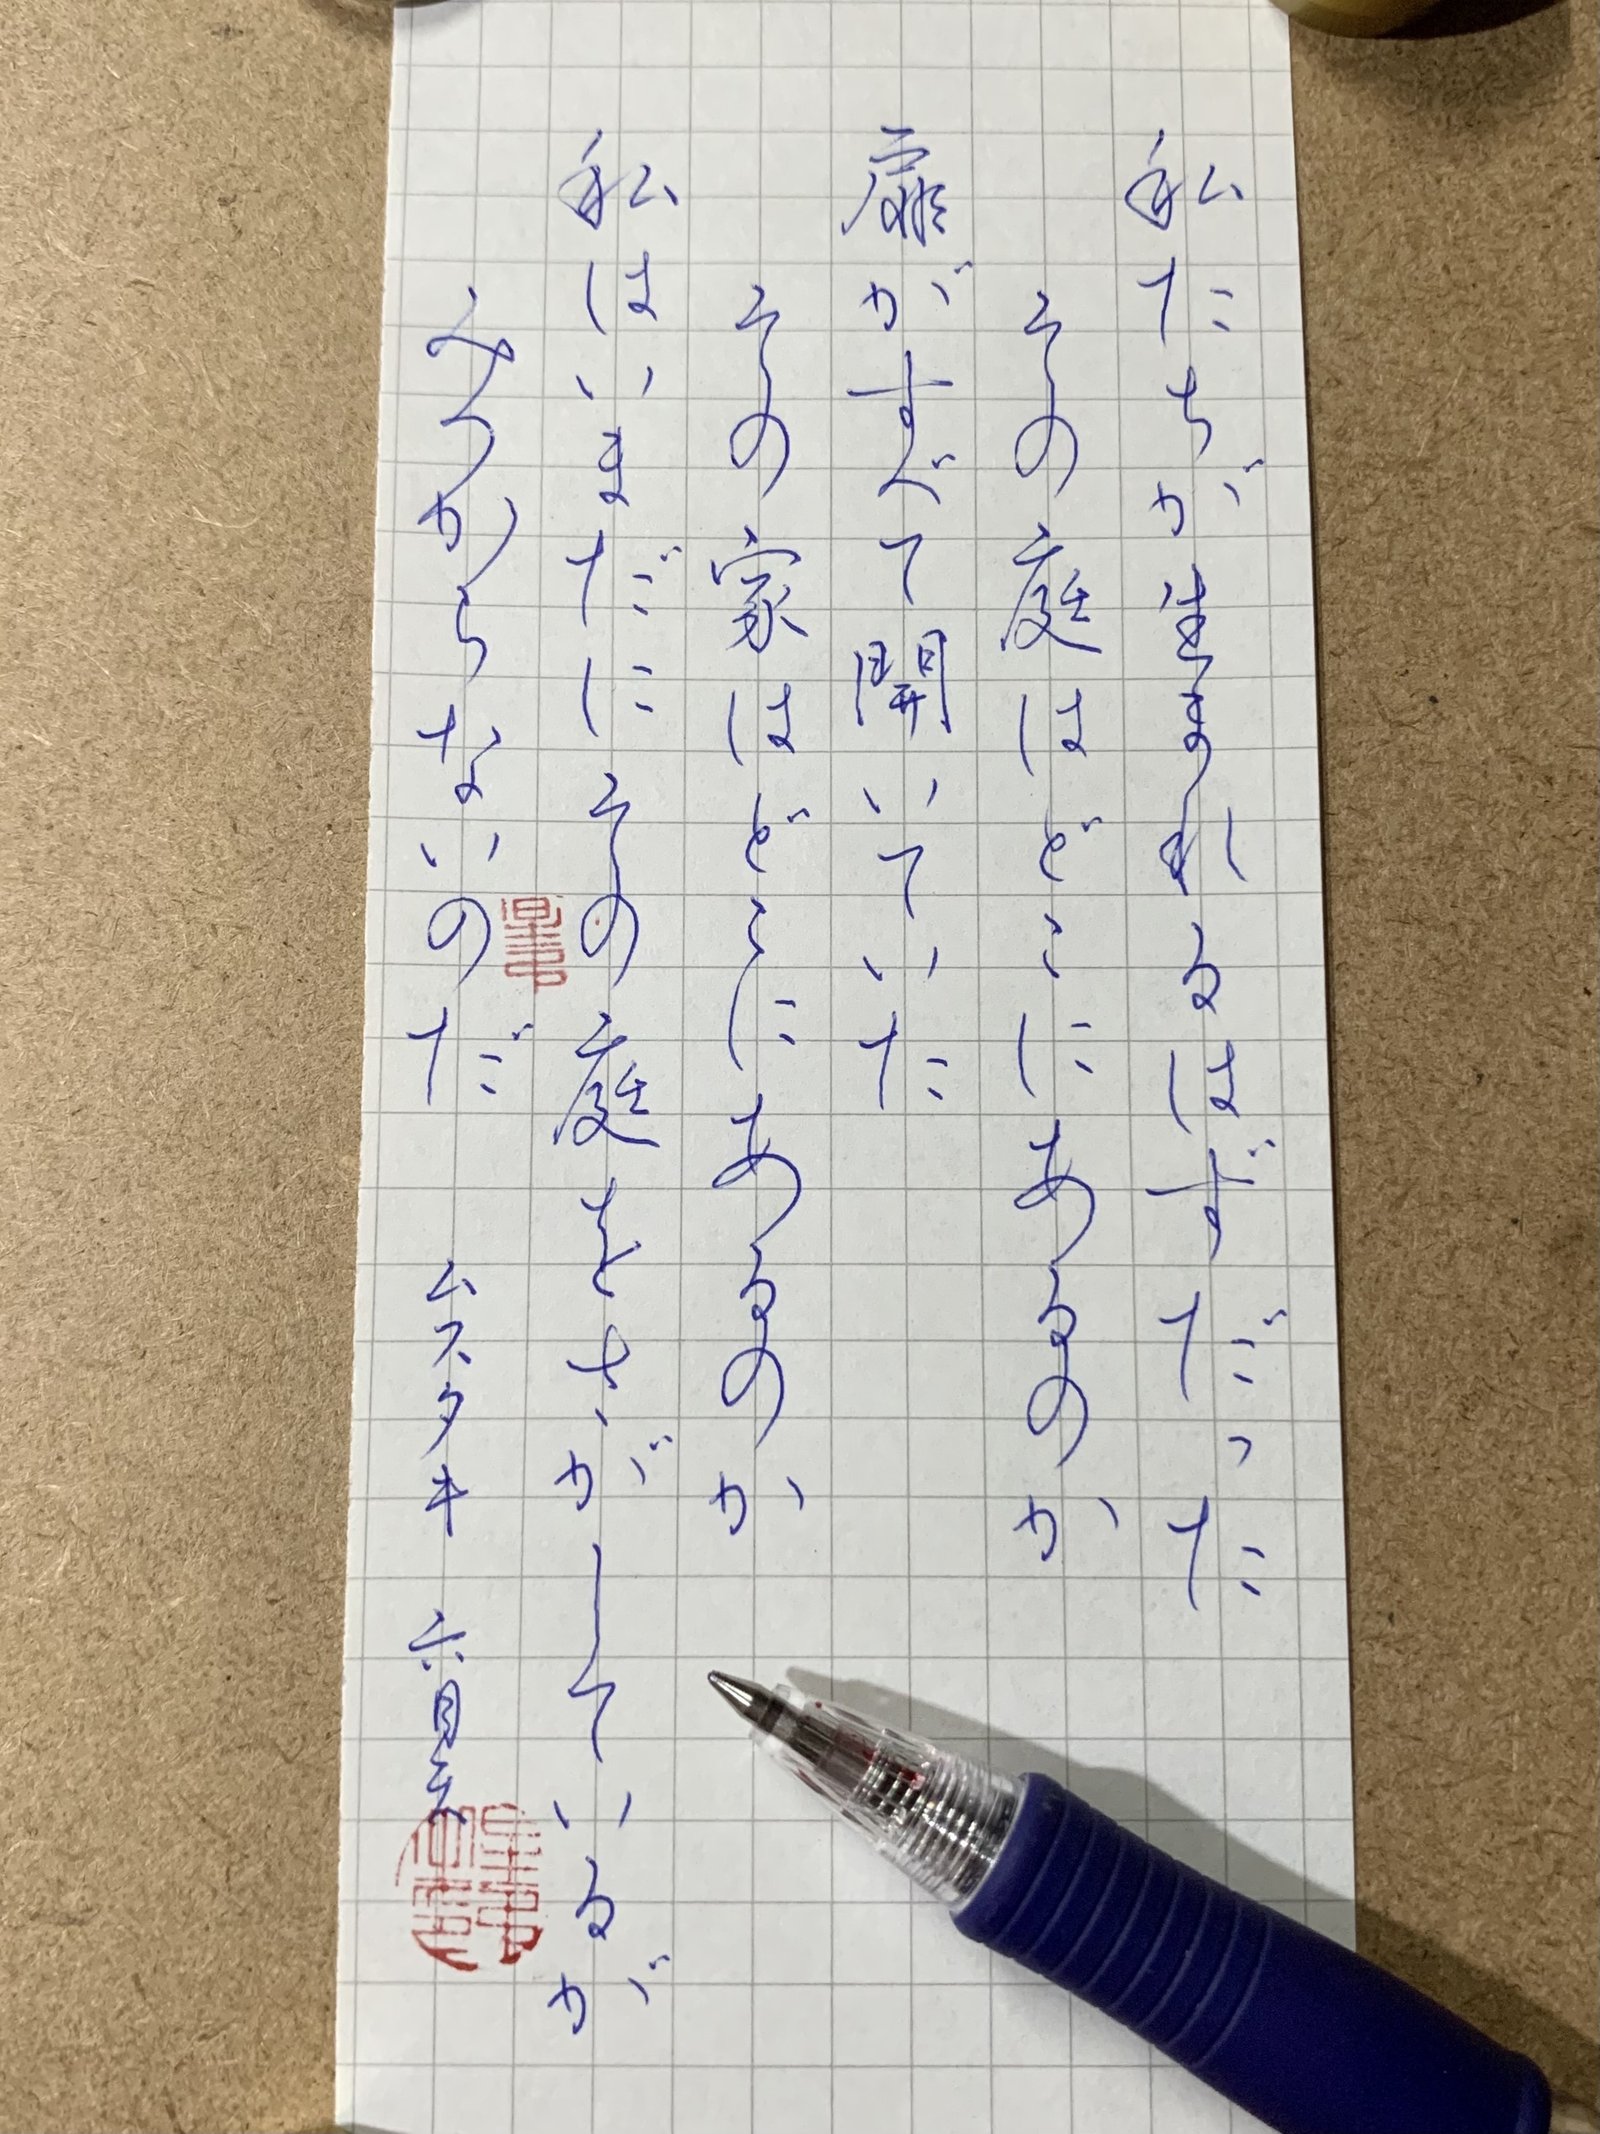 私たちが生まれるはずだった
その庭はどこにあるのか
扉がすべて開いていた
その家はどこにあるのか
私はいまだにその庭をさがしているが
みつからないのだ ムスタキ